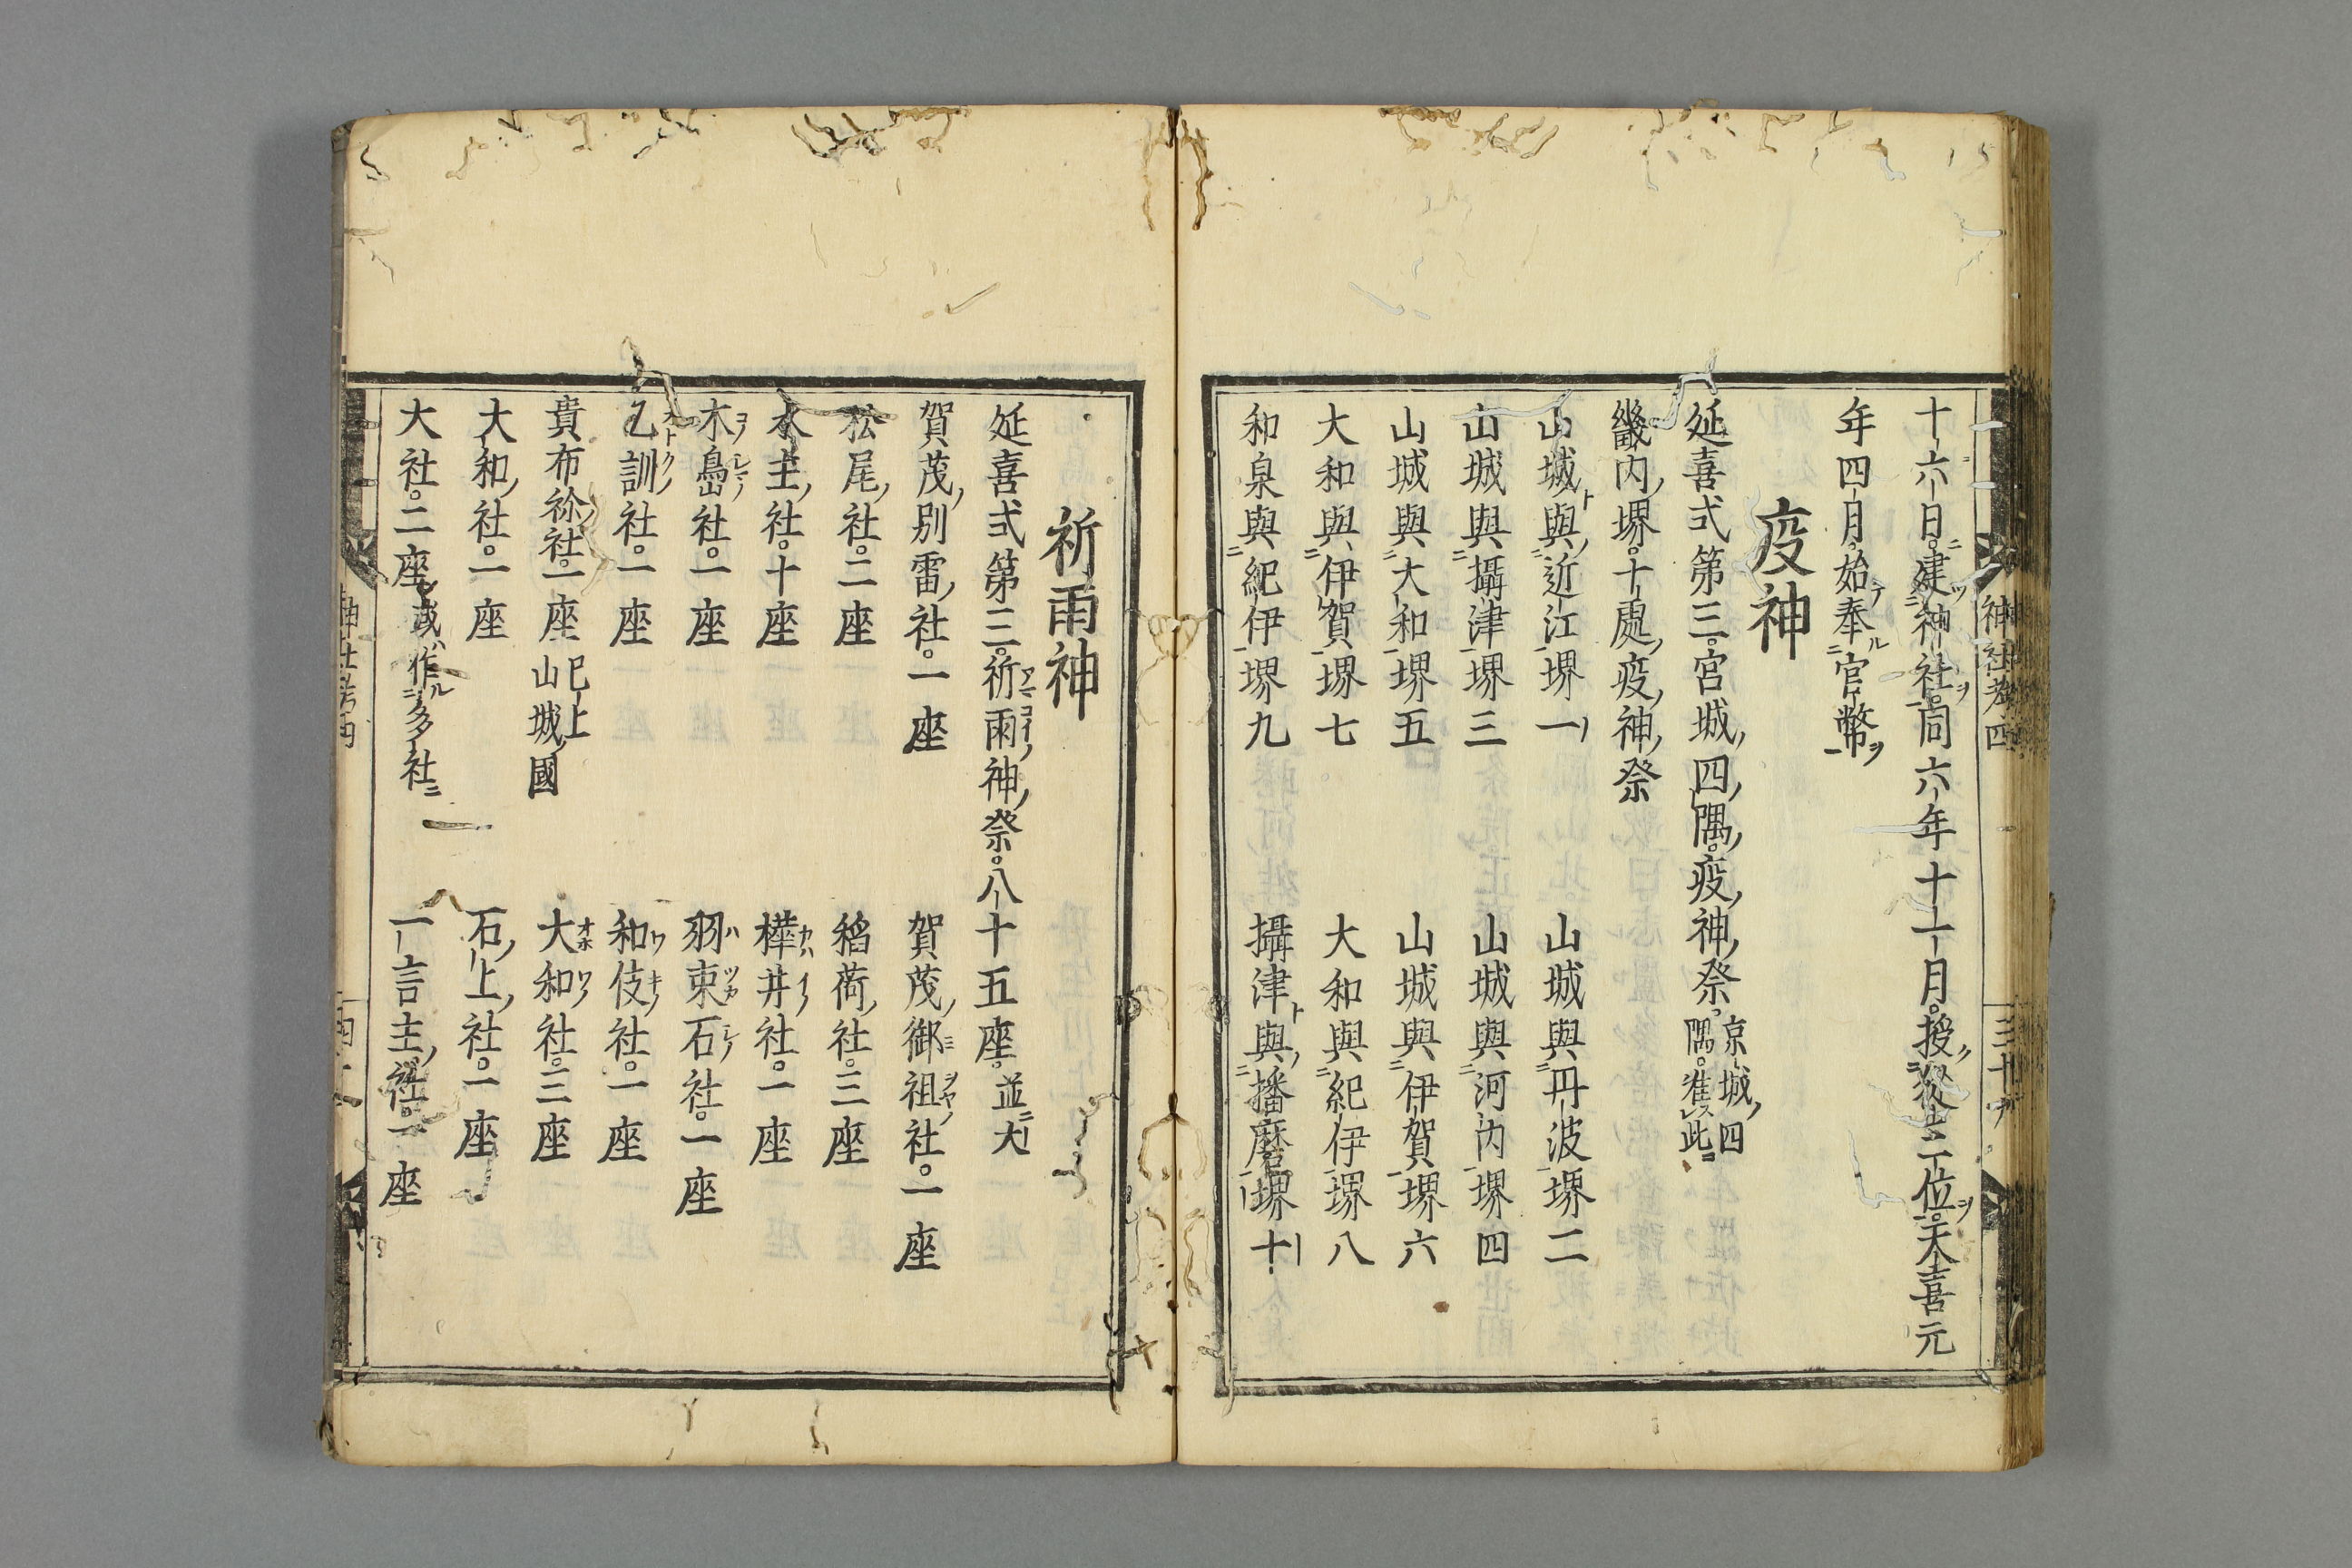 十六日建神社同六年十一月授從二位天喜元
年四月始奉官幣
疫神
延喜式第三宮城四隅疫神祭京城四隅准此
畿内堺十處疫神祭
山城與近江堺一 山城與丹波堺二
山城與攝津堺三 山城與河内堺四
山城與大和堺五 山城與伊賀堺六
大和與伊賀堺七 大和與紀伊堺八
和泉與紀伊堺九 攝津與播磨堺十
神社考四
三十
祈雨神
延喜式第三祈雨神祭八十五座並大
賀茂別雷社一座 賀茂御祖社一座
松尾社二座 稻荷社三座
水主社十座 樺井社一座
木嶋社一座 羽束石社一座
乙訓社一座 和伎社一座
貴布祢社一座已上山城國 大和社三座
大和社一座 石上社一座
大社二座或作多社 一言主社一座